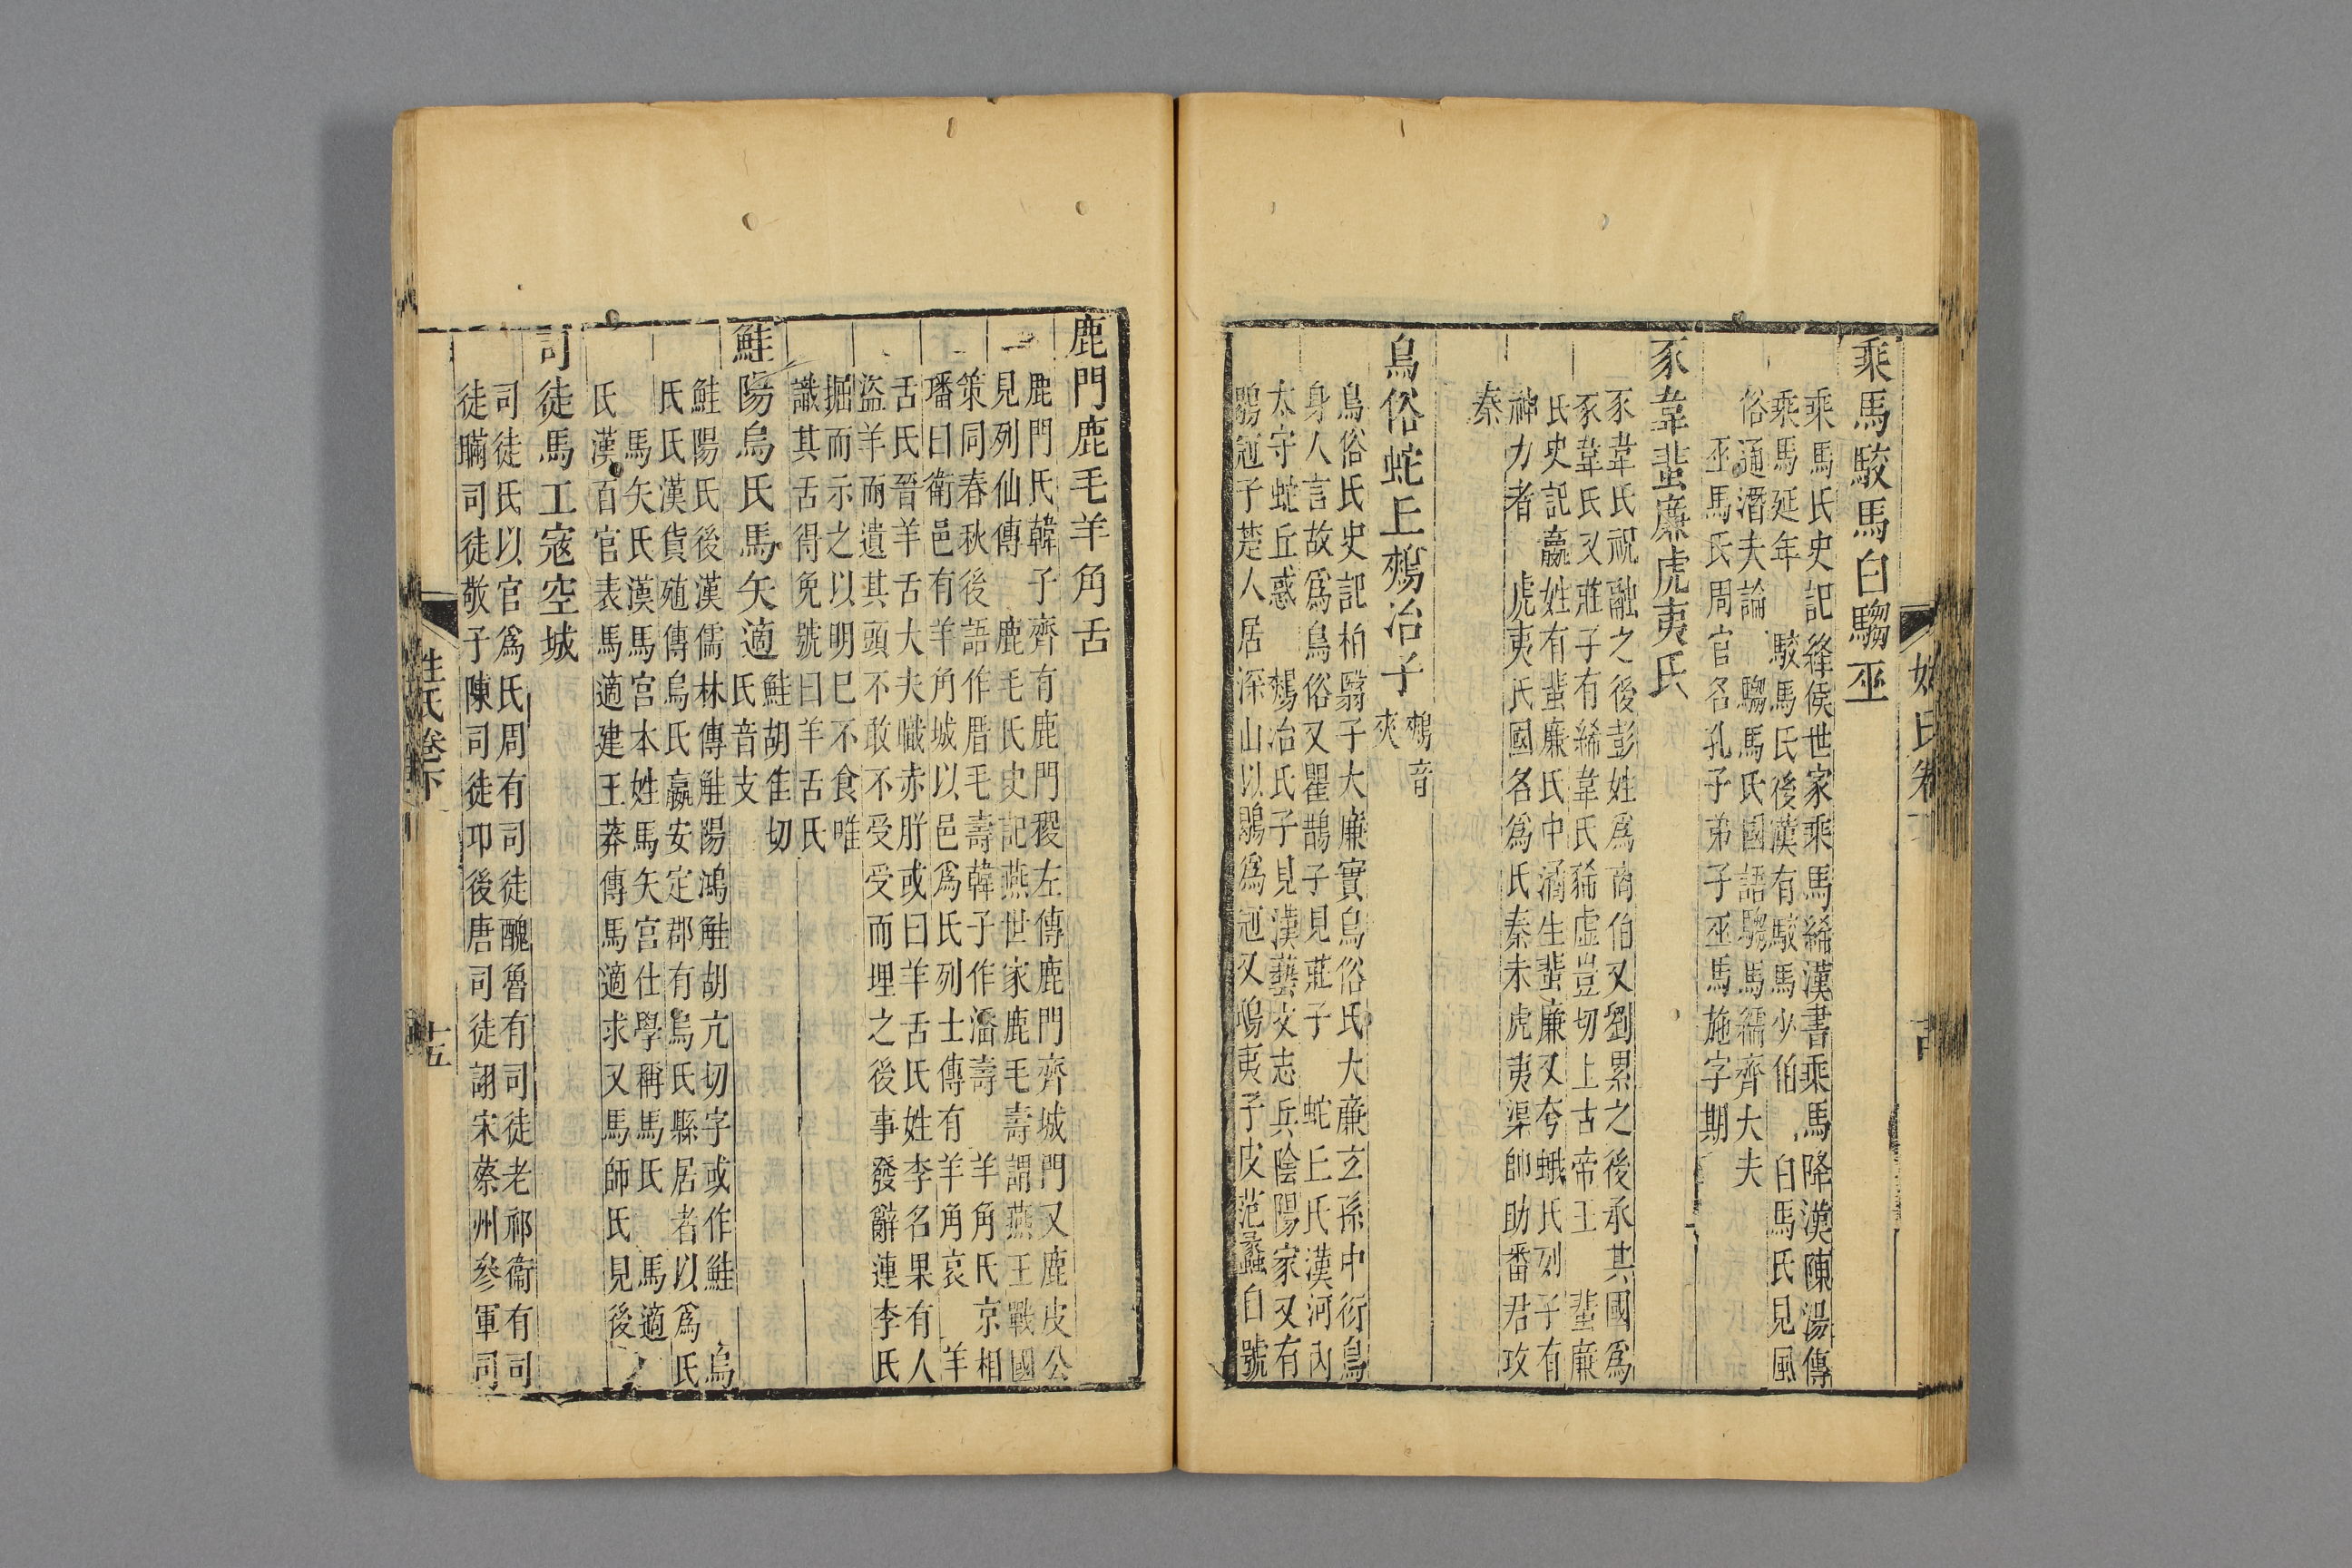 姓氏卷下
乘馬駮馬白騶巫
乘馬氏史記絳侯世家乘馬絺漢書乘馬降漢陳湯傳
乘馬延年 駮馬氏後漢有駮馬少伯 白馬氏見風
俗通潛夫論 騶馬氏國語騶馬繻齊大夫
巫馬氏周官名孔子弟子巫馬施字期
豕韋蜚廉虎夷氏
豕韋氏祝融之後彭姓爲商伯又劉累之後承其國爲
豕韋氏又莊子有絺韋氏豨虛豈切上古帝王 蜚廉
氏史記嬴姓有蜚廉氏中潏生蜚廉又夸蛾氏列子有
神力者 虎夷氏國名爲氏秦末虎夷渠帥助番君攻
秦
鳥俗蛇丘鵊冶子
鵊音
夾
鳥俗氏史記柏翳子大廉實鳥俗氏大廉玄孫中衍鳥
身人言故爲鳥俗又瞿鵲子見莊子 蛇丘氏漢河內
太守蛇丘惑 鵊冶氏子見漢藝文志兵陰陽家又有
鶡冠子楚人居深山以鶡爲冠又鴟夷子皮范蠡自號
鹿門鹿毛羊角舌
鹿門氏韓子齊有鹿門稷左傳鹿門齊城門又鹿皮公
見列仙傳 鹿毛氏史記燕世家鹿毛壽謂燕王戰國
策同春秋後語作厝毛壽韓子作潘壽 羊角氏京相
璠曰衛邑有羊角城以邑爲氏列士傳有羊角哀 羊
舌氏晉羊舌大夫職赤肸或曰羊舌氏姓李名果有人
盜羊而遺其頭不敢不受受而埋之後事發辭連李氏
掘而示之以明已不食唯
識其舌得免號曰羊舌氏
鮭陽烏氏馬矢適
鮭胡隹切
氏音支
鮭陽氏後漢儒林傳觟陽鴻觟胡亢切字或作鮭 烏
氏氏漢貨殖傳烏氏嬴安定郡有烏氏縣居者以爲氏
馬矢氏漢馬宮本姓馬矢宮仕學稱馬氏 馬適
氏漢百官表馬適建王莽傳馬適求又馬師氏見後
司徒馬工寇空城
司徒氏以官爲氏周有司徒醜魯有司徒老祁衛有司
徒瞞司徒敬子陳司徒卭後唐司徒詡宋蔡州參軍司
姓氏卷下
十五